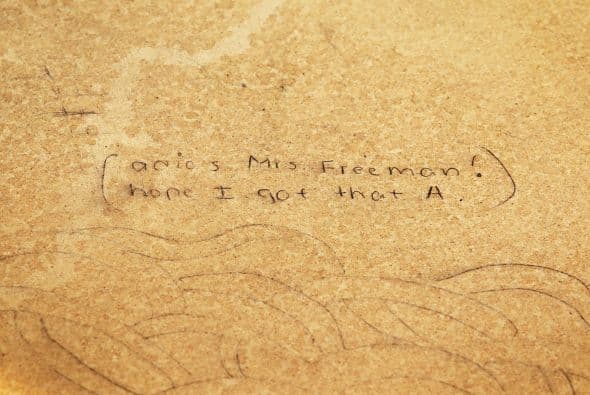 (adios Mrs. Freeman!
hope I got that A.)